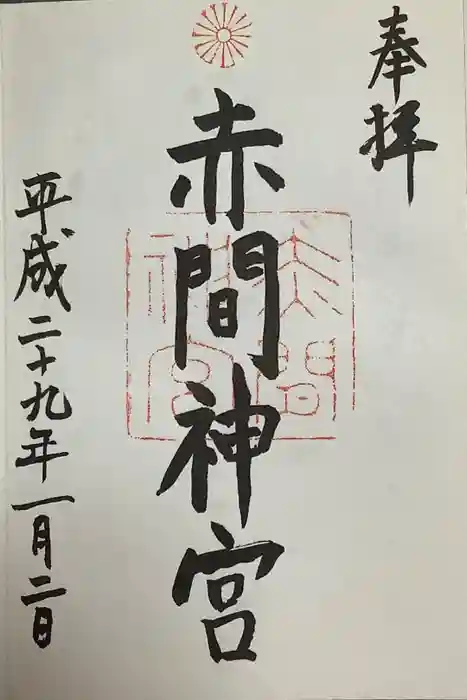 奉拝
赤間神宮
平成二十九年一月二日
赤間
神宮